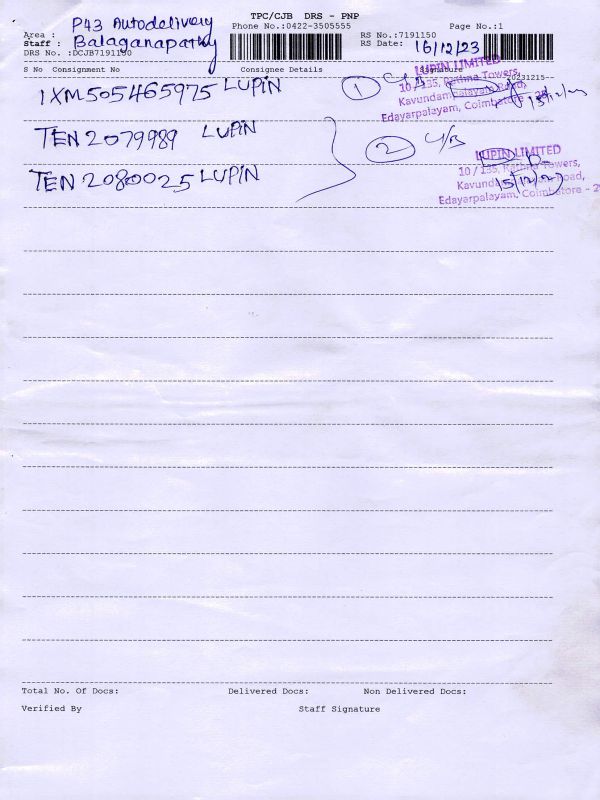 TPC/CJB DRS - PNP
Phone No.:0422-3505555 Page No.:1
Area : P43 Autodelivery RS No.:7191150
Staff : Balaganapathy RS Date: 16/12/23
DRS No. :DCJB7191150
S No Consignment No Consignee Details Signature
20231215
1XM505465975 LUPIN 1
LUPIN LIMITED
10 / 135, Rathna Towers,
Kavundampalayam Road,
Edayarpalayam, Coimbatore - 25
TEN2079989 LUPIN 2
TEN2080025 LUPIN
LUPIN LIMITED
10 / 135, Rathna Towers,
Road,
15/12/23
Edayarpalayam, Coimbatore - 2
Total No. Of Docs: Delivered Docs: Non Delivered Docs:
Verified By Staff Signature